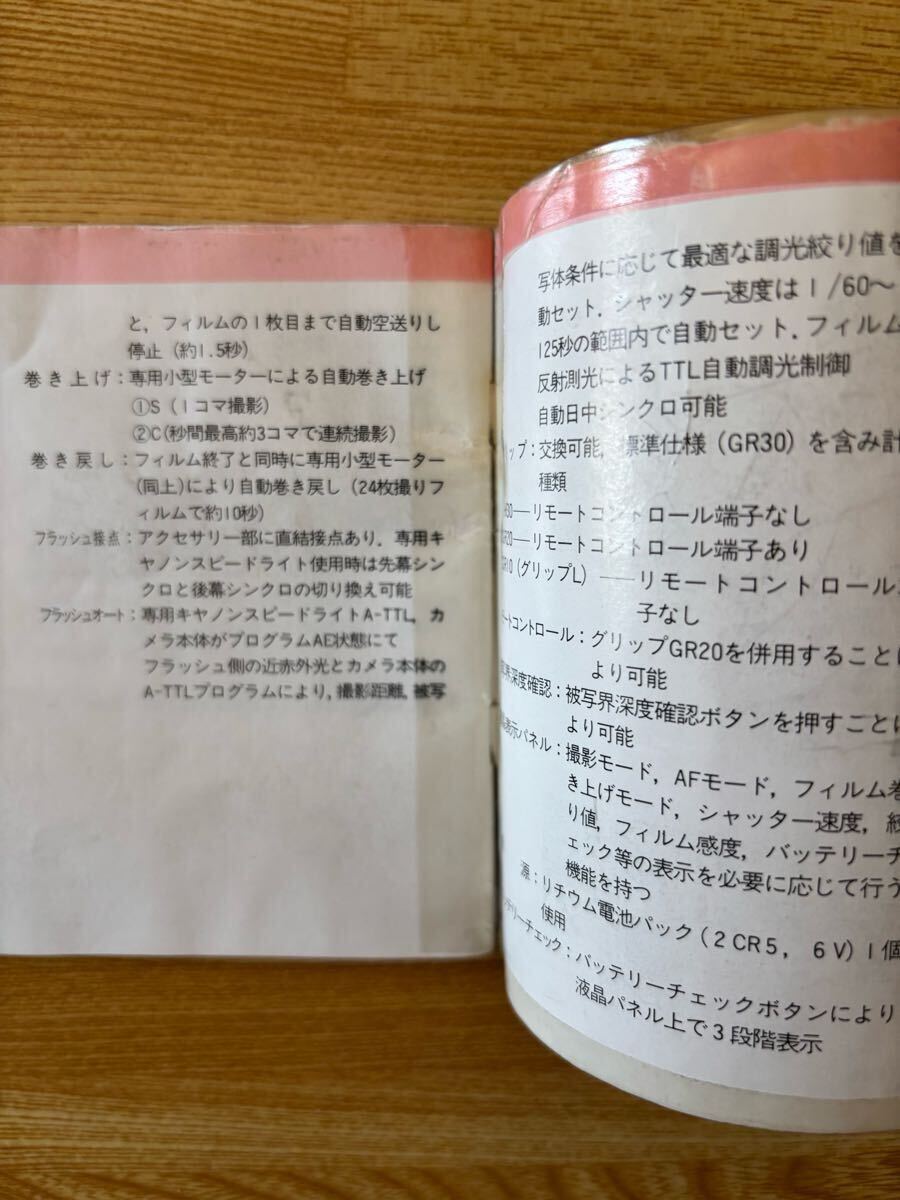 と，フィルムの1枚目まで自動空送りし
停止（約1.5秒）
巻き上げ：専用小型モーターによる自動巻き上げ
①S（1コマ撮影）
②C(秒間最高約3コマで連続撮影）
巻き戻し：フィルム終了と同時に専用小型モーター
(同上)により自動巻き戻し（24枚撮りフ
ィルムで約10秒）
フラッシュ接点：アクセサリー部に直結接点あり．専用キ
ヤノンスピードライト使用時は先幕シン
クロと後幕シンクロの切り換え可能
フラッシュオート：専用キヤノンスピードライトA-TTL，カ
メラ本体がプログラムAE状態にて
フラッシュ側の近赤外光とカメラ本体の
A-TTLプログラムにより，撮影距離，被写
写体条件に応じて最適な調光絞り値を
動セット．シャッター速度は1/60〜
125秒の範囲内で自動セット．フィルム
反射測光によるTTL自動調光制御
自動日中シンクロ可能
ップ：交換可能，標準仕様（GR30）を含み計
種類
30——リモートコントロール端子なし
R20——リモートコントロール端子あり
GR10（グリップL）——リモートコントロール
子なし
ートコントロール：グリップGR20を併用することに
より可能
界深度確認：被写界深度確認ボタンを押すことに
より可能
表示パネル：撮影モード，AFモード，フィルム巻
き上げモード，シャッター速度，絞
り値，フィルム感度，バッテリーチ
ェック等の表示を必要に応じて行う
機能を持つ
源：リチウム電池パック（2CR5，6V）1個
使用
ッテリーチェック：バッテリーチェックボタンにより
液晶パネル上で3段階表示